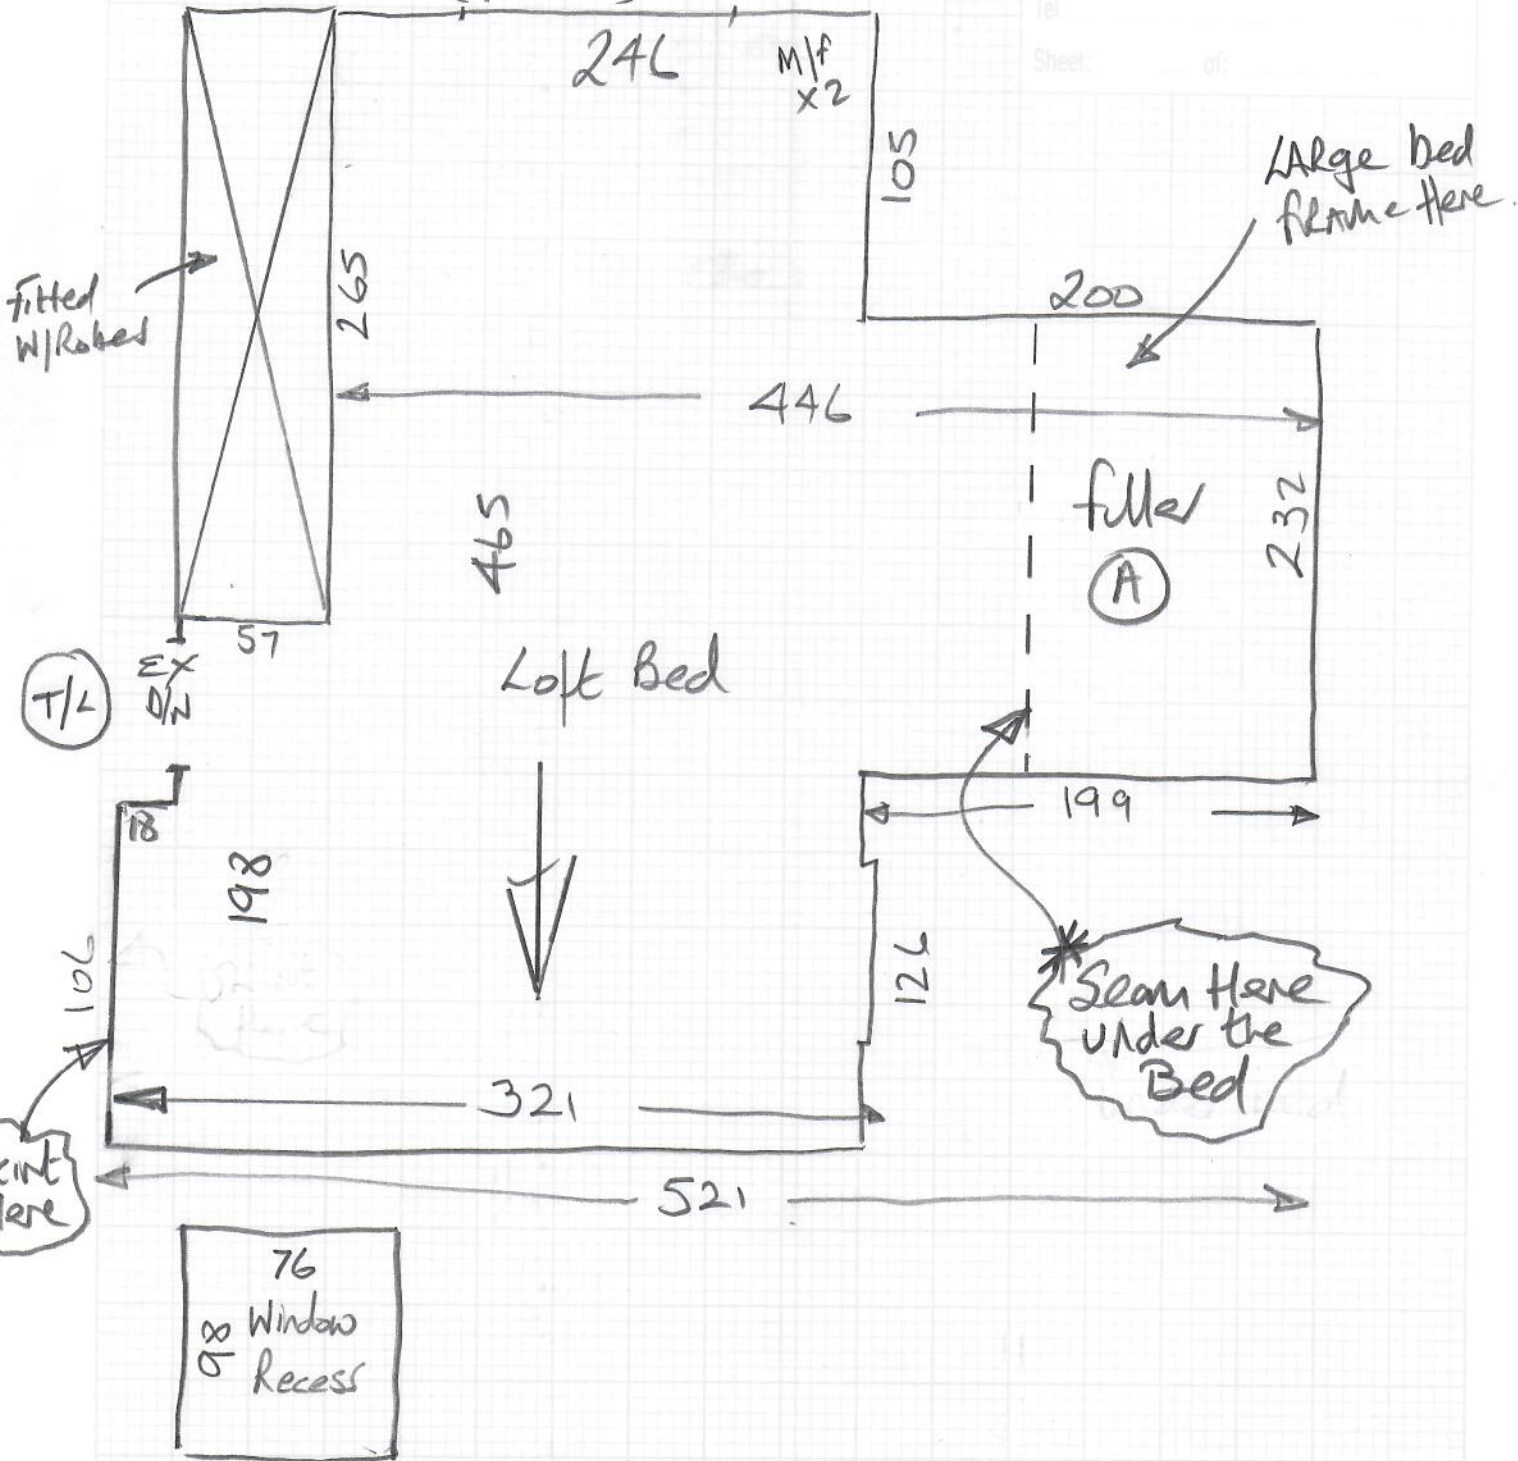 Tel
Sheet: of:
246
M/f
x2
105
LARge bed
fRAMe Here.
200
fitted
W/Robes
265
446
465
filler
A
232
57
T/L
EX
D/N
Loft Bed
18
198
199
106
126
* Seam Here
under the
Bed
321
Here
521
76
98
Window
Recess